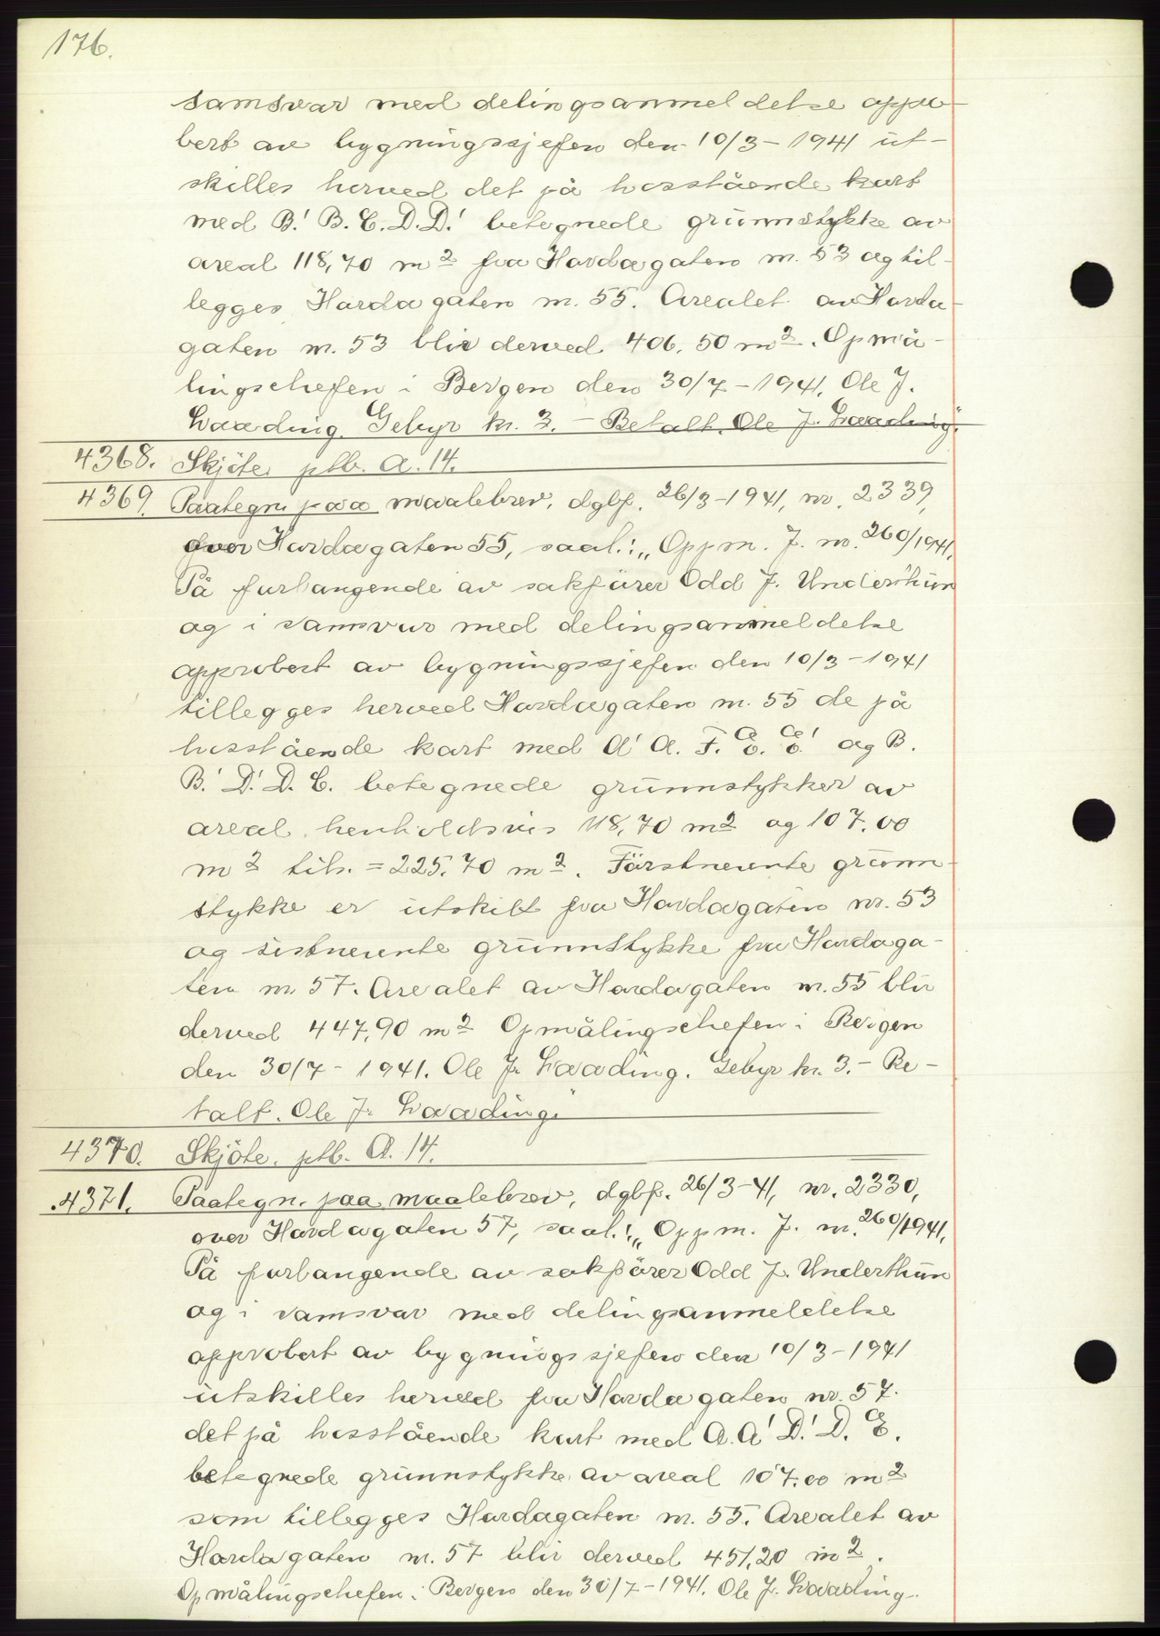 176.
samsvar med delingsanmeldelse appro-
bert av bygningssjefen den 10/3-1941 ut-
skilles herved det på hosstående kart
med B.' B. C. D. D.' betegnede grunnstykke av
areal 118,70 m2 fra Hardagaten nr. 53 og til-
legges Hardagaten nr. 55. Arealet av Harda-
gaten nr. 53 blir derved 406.50 m2. Opmå-
lingschefen i Bergen den 30/7-1941. Ole J.
Laading. Gebyr kr. 3.- Betalt. Ole J. Laading."
4368. Skjöte. ptb. A. 14.
4369. Paategn. paa maalebrev, dgbf. 26/3-1941, nr. 2339,
over Hardagaten 55, saal.: „Oppm. J. nr. 260/1941.
På forlangende av sakförer Odd J. Underthun
og i samsvar med delingsanmeldelse
approbert av bygningssjefen den 10/3-1941
tillegges herved Hardagaten nr. 55 de på
hosstående kart med A' A. F. E. E' og B.
B.' D.' D. C. betegnede grunnstykker av
areal henholdsvis 118,70 m2 og 107.00
m2 tils. = 225.70 m2. Förstnevnte grunn-
stykke er utskilt fra Hardagaten nr. 53
og sistnevnte grunnstykke fra Hardaga-
ten nr. 57. Arealet av Hardagaten nr. 55 blir
derved 447,90 m2 Opmålingschefen i Bergen
den 30/7-1941. Ole J. Laading. Gebyr kr. 3.- Be-
talt. Ole J. Laading."
4370. Skjöte. ptb. A. 14.
4371. Paategn. paa maalebrev, dgbf. 26/3-41, nr. 2330,
over Hardagaten 57, saal.: „Oppm. J. nr. 260/1941.
På forlangende av sakförer Odd J. Underthun
og i samsvar med delingsanmeldelse
approbert av bygningssjefen den 10/3-1941
utskilles herved fra Hardagaten nr. 57.
det på hosstående kart med A. A' D.' D. E.
betegnede grunnstykke av areal 107.00 m2
som tillegges Hardagaten nr. 55. Arealet av
Hardagaten nr. 57 blir derved 451,20 m2.
Opmålingschefen i Bergen den 30/7-1941. Ole J. Laading.